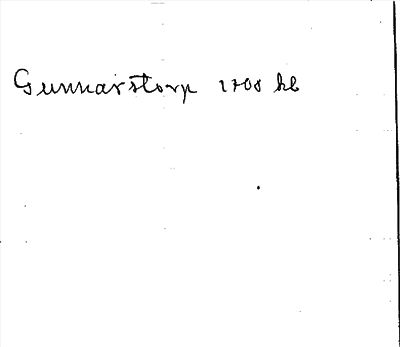 Gunnarstorp 1700 hl